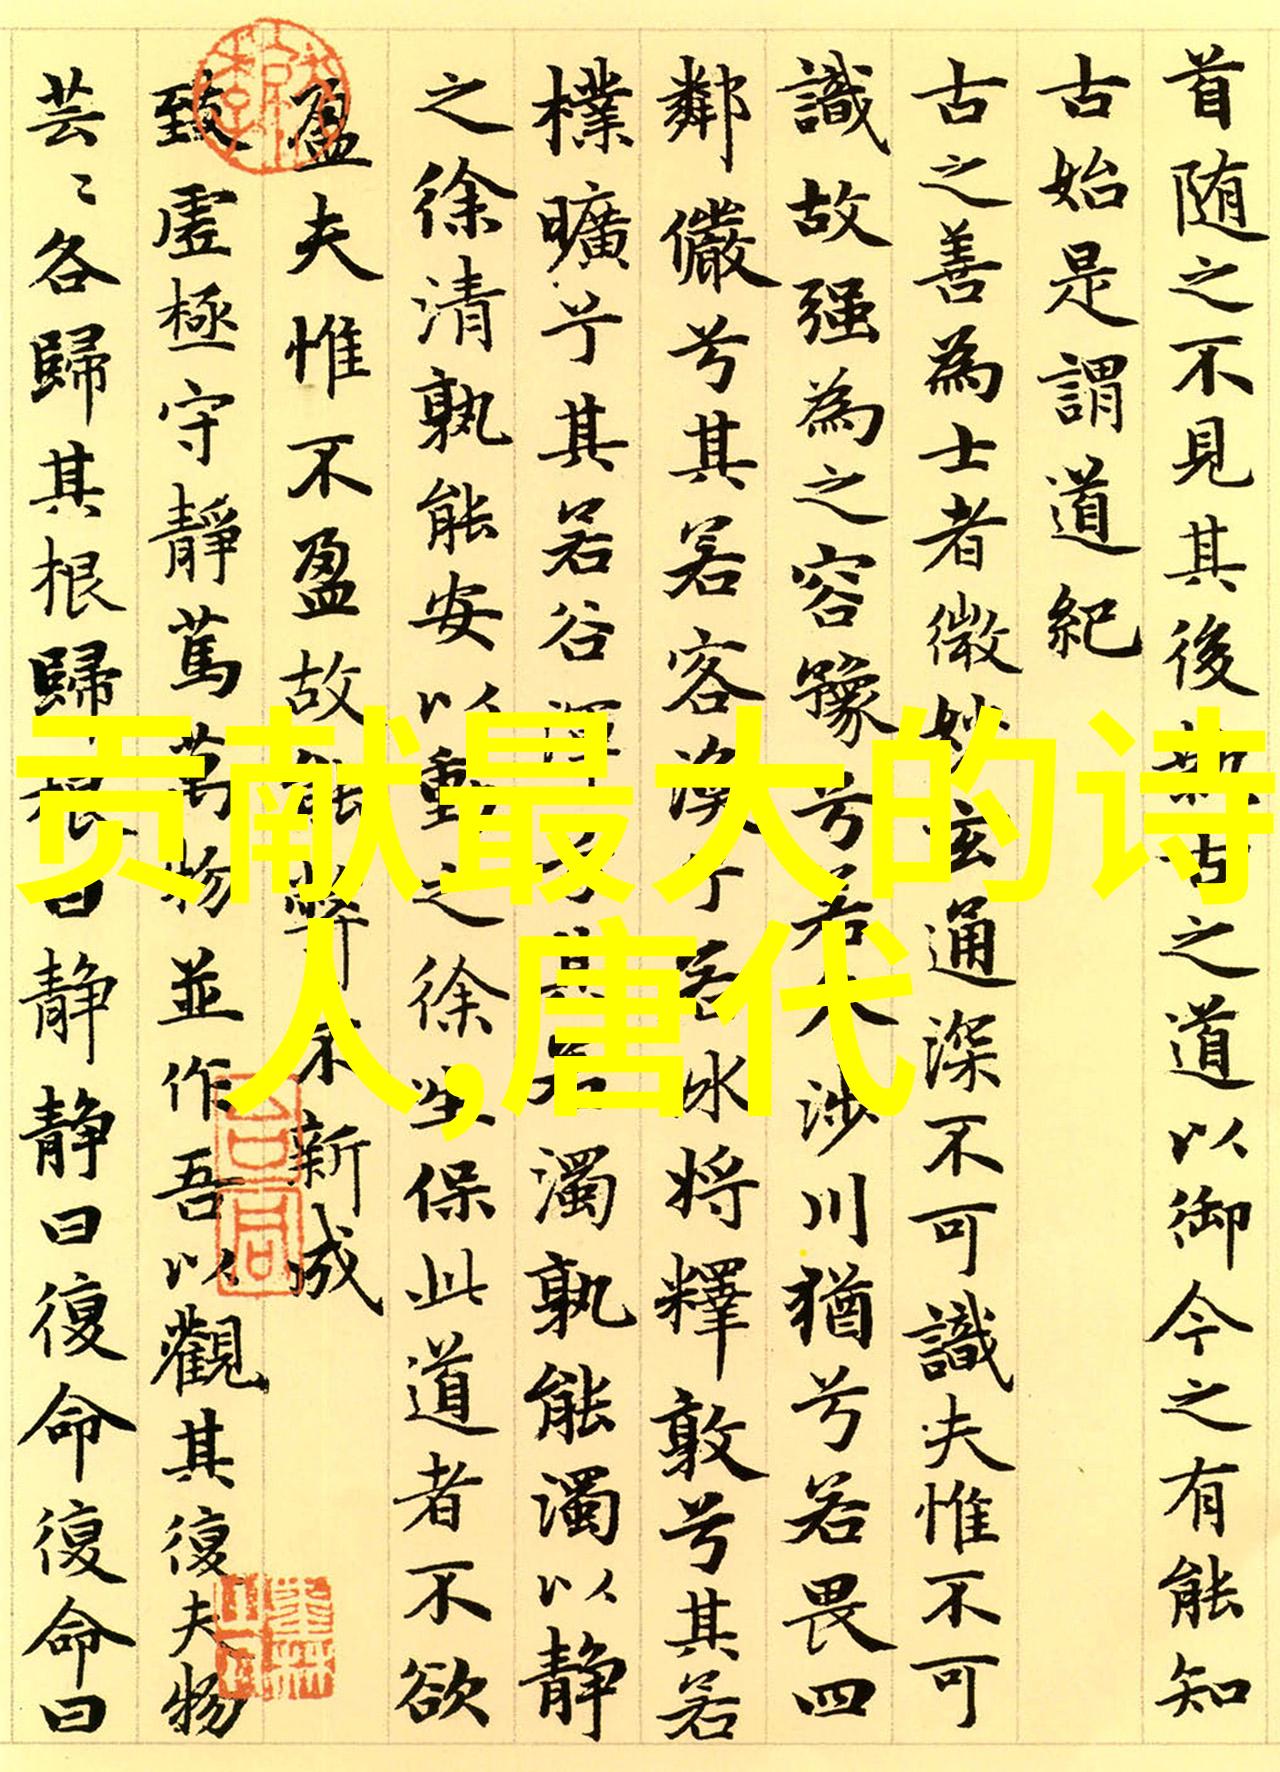 首随之不見其後執古之道以御今之有能知
古始是謂道紀
古之善為士者微妙玄通深不可識夫惟不可
識故强為之容豫兮若涉川猶兮若畏四
鄰儼兮其若客渙兮若冰将釋敦兮其若
樸曠兮其若谷渾兮其若濁孰能濁以静
之徐清孰能安以動之徐生保此道者不欲
盈夫惟不盈故能弊不新成
致虚極守靜篤萬物並作吾以觀其復夫物
芸〻各歸其根歸根曰静静曰復命復命曰
贡献最大的诗
人,唐代